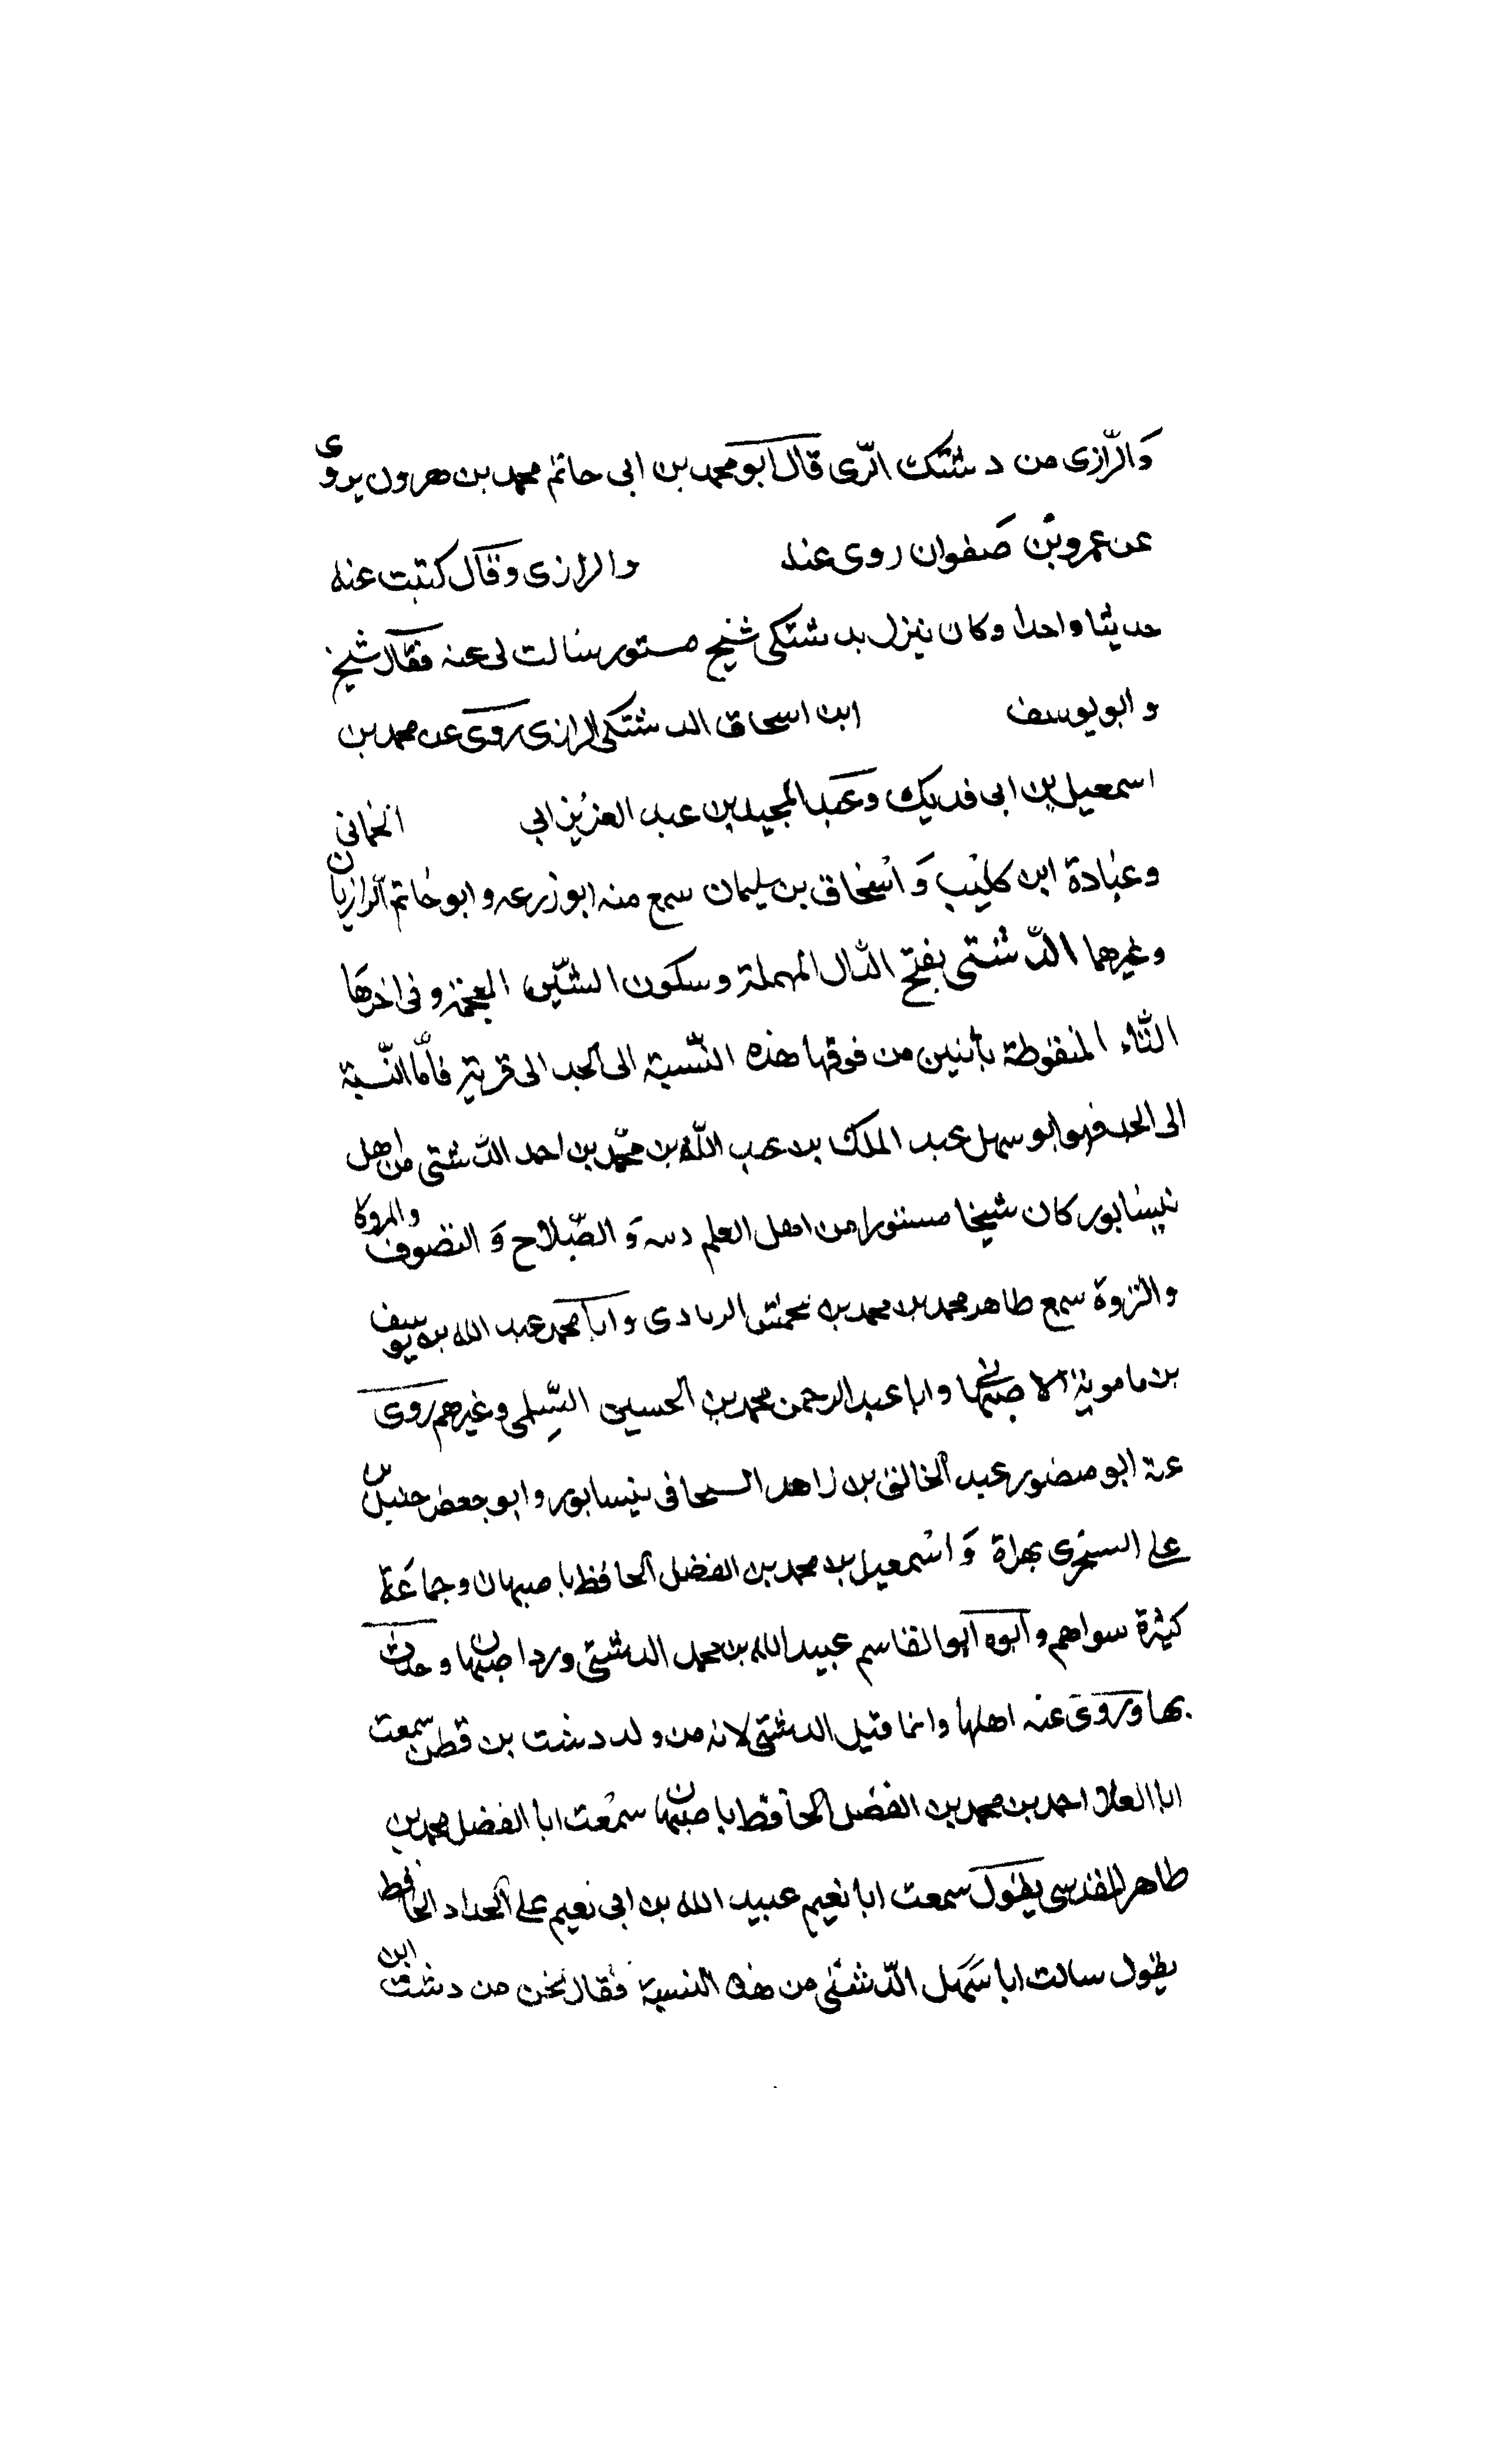 وَالرّازى من دشتك الرّى قال ابو محمد بن ابى حاتم محمد بن هرون يروى
عن عمرو بن صَفوان روى عنه والرازى وقال كتبت عنه
حديثا واحدا وكان ينزل بدشتكى شيخ مستور سالت لى عنه فقال شيخ
و ابو يوسف ابن اسحاق الدشتكى الرازى روى عن محمد بن
اسمعيل بن ابى فديك وعبد المجيد بن عبد العزيز ابى الحمانى
وعبادة ابن كليب وَ اسحاق بن سليمان سمع منه ابو زرعه و ابو حاتم الرازيان
وغيرهما الدّشتى بفتح الدال المهملة وسكون الشّين المعجمة وفى اخرهَا
التّاء المنقوطة باثنين من فوقها هذه النّسبة الى الجد الى قرية فامّا النّسبة
الى الجد فهو ابو سهل عبد الملك بن عبد اللّه بن محمّد بن احمد الدشتى من اهل
نيسابور كان شيخا مستورا من اهل العلم وَ الصّلاح وَ التصوف والمروة
والثروة سمع طاهر محمد بن محمد بن محمش الزيادى و ابا محمد عبد الله بن يوسف
بن مامويه الاصبهانى و ابا عبد الرحمن محمد بن الحسين السّلمى وغيرهم روى
عنه ابو منصور عبد الخالق بن زاهد السحافى بنيسابور و ابو جعفر حنبل بن
على السنجرى بهراة وَ اسمعيل بن محمد بن الفضل الحافظ باصبهان وجماعَة
كثيرة سواهم و ابوه ابو القاسم عبيد الله بن محمد الدشتى ورد اصبهان وحدث
بها وروى عنه اهلها وانما قيل الدشتى لانه من ولد دشت بن قطن سمعت
ابا العلا احمد بن محمد بن الفضل الحافظ باصبهان سمعت ابا الفضل محمد بن
طاهر المقدسى يقول سمعت ابا نعيم عبيد الله بن ابى نعيم على الحداد الحافظ
يقول سالت ابا سَهل الدّشتى من هذه النسبة فقال نحن من دشت ابن